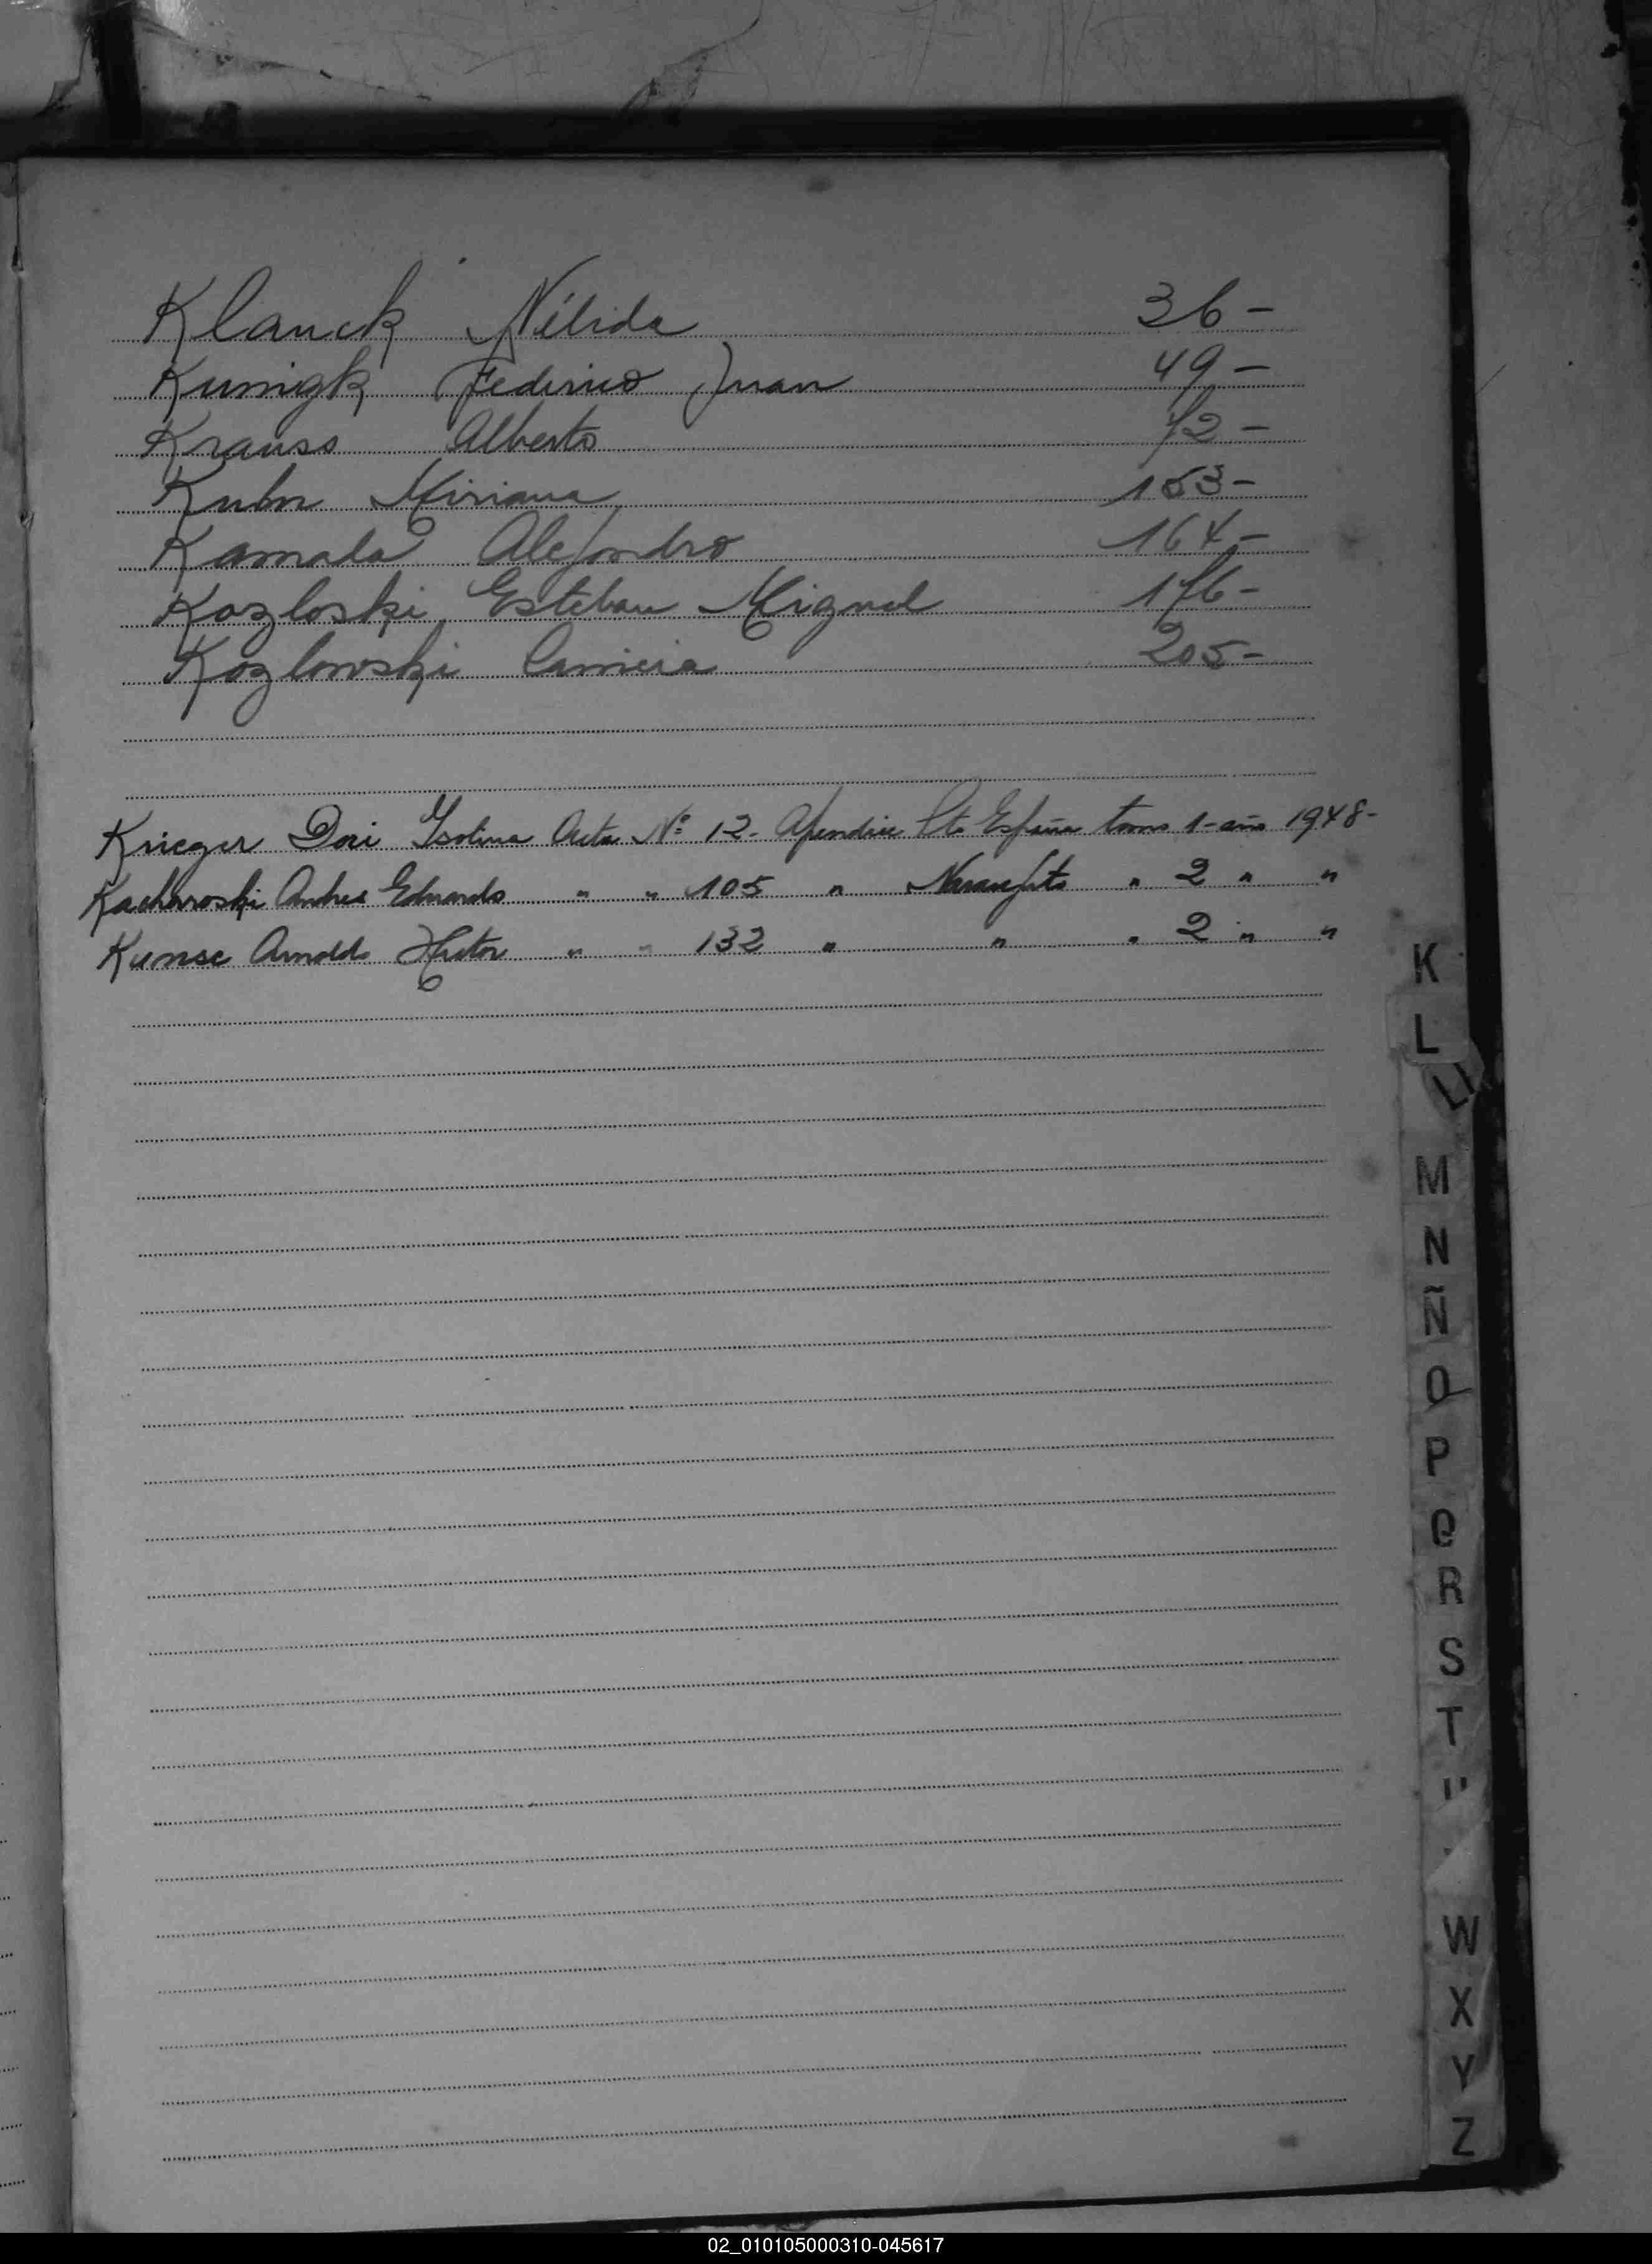 Klanck Nélida 36-
Kunigk Federico Juan 49-
Krauss Alberto 72-
Kuhn Miriana 153-
Kamala Alejandro 164-
Kozloski Esteban Miguel 176-
Kozlowski 205-
Krieger Dori Isolina Acta Nº 12- Apendice Pto España tomo 1- año 1948-
Andres Eduardo " " 105 " Naranjito " 2 " "
Kunse Arnoldo Hector " " 132 " " " 2 " "
K
L
Ll
M
N
Ñ
O
P
Q
R
S
T
W
X
Y
Z
02_010105000310-045617